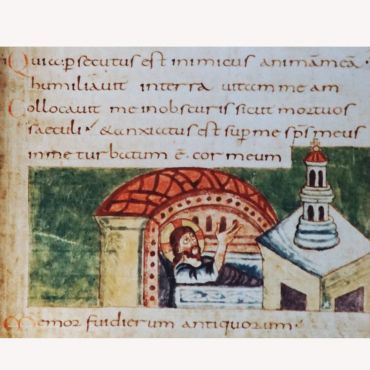 Quia p̱secutus est inimicus animāmeā·
humiliauit interra uitam me am
Collocauit me inobscuris sicut mortuos
saeculi· &anxiatus est sup̱ me sp̄s meus
inme turbatum ē cor meum
Memor fui dierum antiquorum·